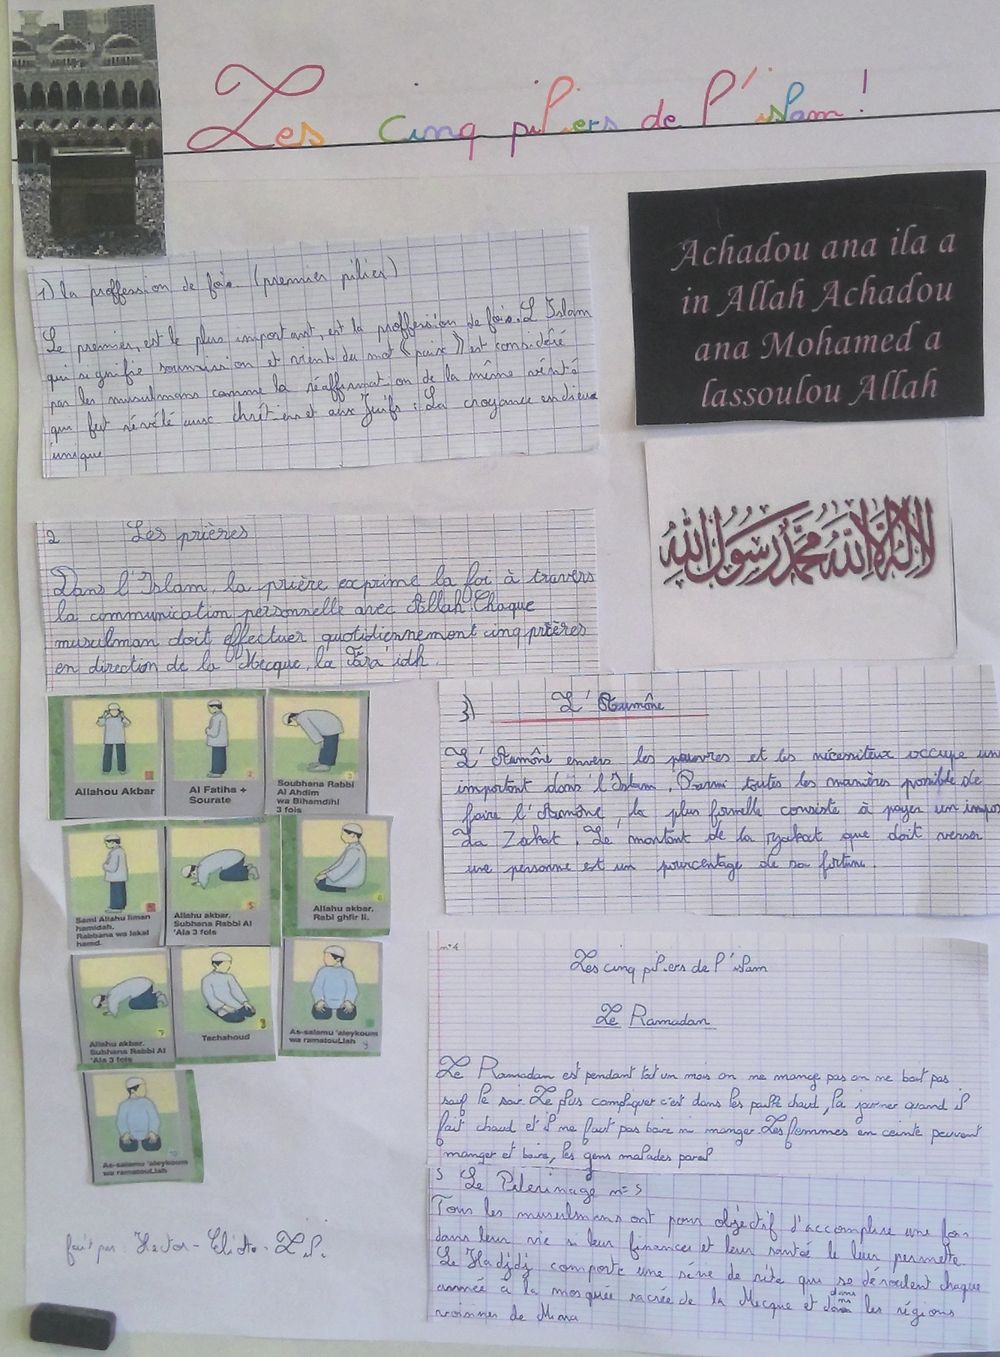 Les cinq piliers de l'islam !
1) la proffession de fois. (premier pilier)
Le premier, est le plus important, est la proffession de fois. L'Islam
qui signifie soumission et vient du mot "paix" est considéré
par les musulmans comme la réaffirmation de la même vérité
qui fut révélé aux chrétiens et aux Juifs : La croyance en dieu
unique
Achadou ana ila a
in Allah Achadou
ana Mohamed a
lassoulou Allah
لا إله إلا الله محمد رسول الله
2 Les prières
Dans l'Islam, la prière exprime la foi à travers
la communication personnelle avec Allah. Chaque
musulman doit effectuer quotidiennement cinq prières
en direction de la Mecque, la
Allahou Akbar
Al Fatiha +
Sourate
Soubhana Rabbi
Al Ahdim
wa Bihamdihi
3 fois
Sami Allahu liman
hamidah.
Rabbana wa lakal
hamd.
Allahu akbar.
Subhana Rabbi Al
'Ala 3 fois
Allahu akbar.
Rabi ghfir li.
Allahu akbar.
Subhana Rabbi Al
'Ala 3 fois
Tachahoud
As-salamu 'aleykoum
wa ramatouLlah
As-salamu 'aleykoum
wa ramatouLlah
3) L'Aumône
L'Aumône envers les pauvres et les nécessiteux occupe un
important dans l'Islam. Parmi toutes les manières possible de
faire l'Aumône, la plus formelle consiste à payer un impo
La Zakat. Le montant de la zakat que doit verser
une personne est un pourcentage de sa fortune.
n°4
Les cinq piliers de l'islam
Le Ramadan
Le Ramadan est pendant tout un mois on ne mange pas on ne boit pas
sauf le soir. Le plus compliquer c'est dans les chaud, la journer quand il
fait chaud et il ne faut pas boire ni manger Les femmes en ceinte peuvent
manger et boire, les gens malades pareil
5 Le Pèlerinage n=5
Tous les musulmans ont pour objectif d'accomplire une fois
dans leur vie si leur finances et leur santée le leur permette.
Le Hadjdj comporte une série de rite qui se déroulent chaque
année à la mosquée sacrée de la Mecque et dans les régions
voisines de Mina
fait par : Hector -